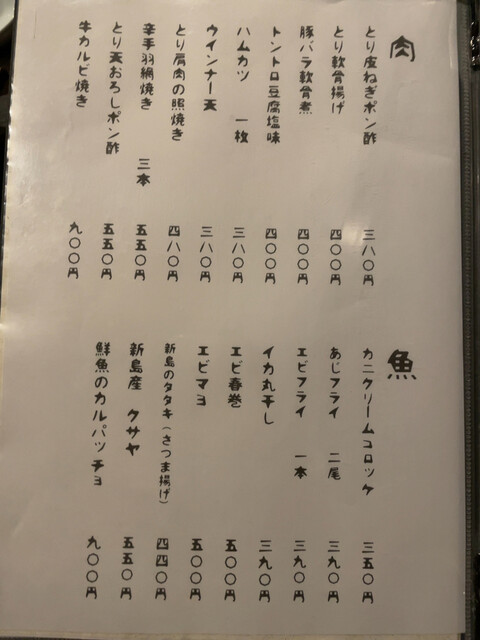 肉
とり皮ねぎポン酢 三八〇円
とり軟骨揚げ 四〇〇円
豚バラ軟骨煮 四〇〇円
トントロ豆腐塩味 四〇〇円
ハムカツ 一枚 三八〇円
ウインナー天 三八〇円
とり肩肉の照焼き 四八〇円
辛手羽網焼き 三本 五五〇円
とり天おろしポン酢 五五〇円
牛カルビ焼き 九〇〇円
魚
カニクリームコロッケ 三五〇円
あじフライ 二尾 三九〇円
エビフライ 一本 三九〇円
イカ丸干し 三九〇円
エビ春巻 五〇〇円
エビマヨ 五〇〇円
新島のタタキ(さつま揚げ) 四四〇円
新島産 クサヤ 五五〇円
鮮魚のカルパッチョ 九〇〇円